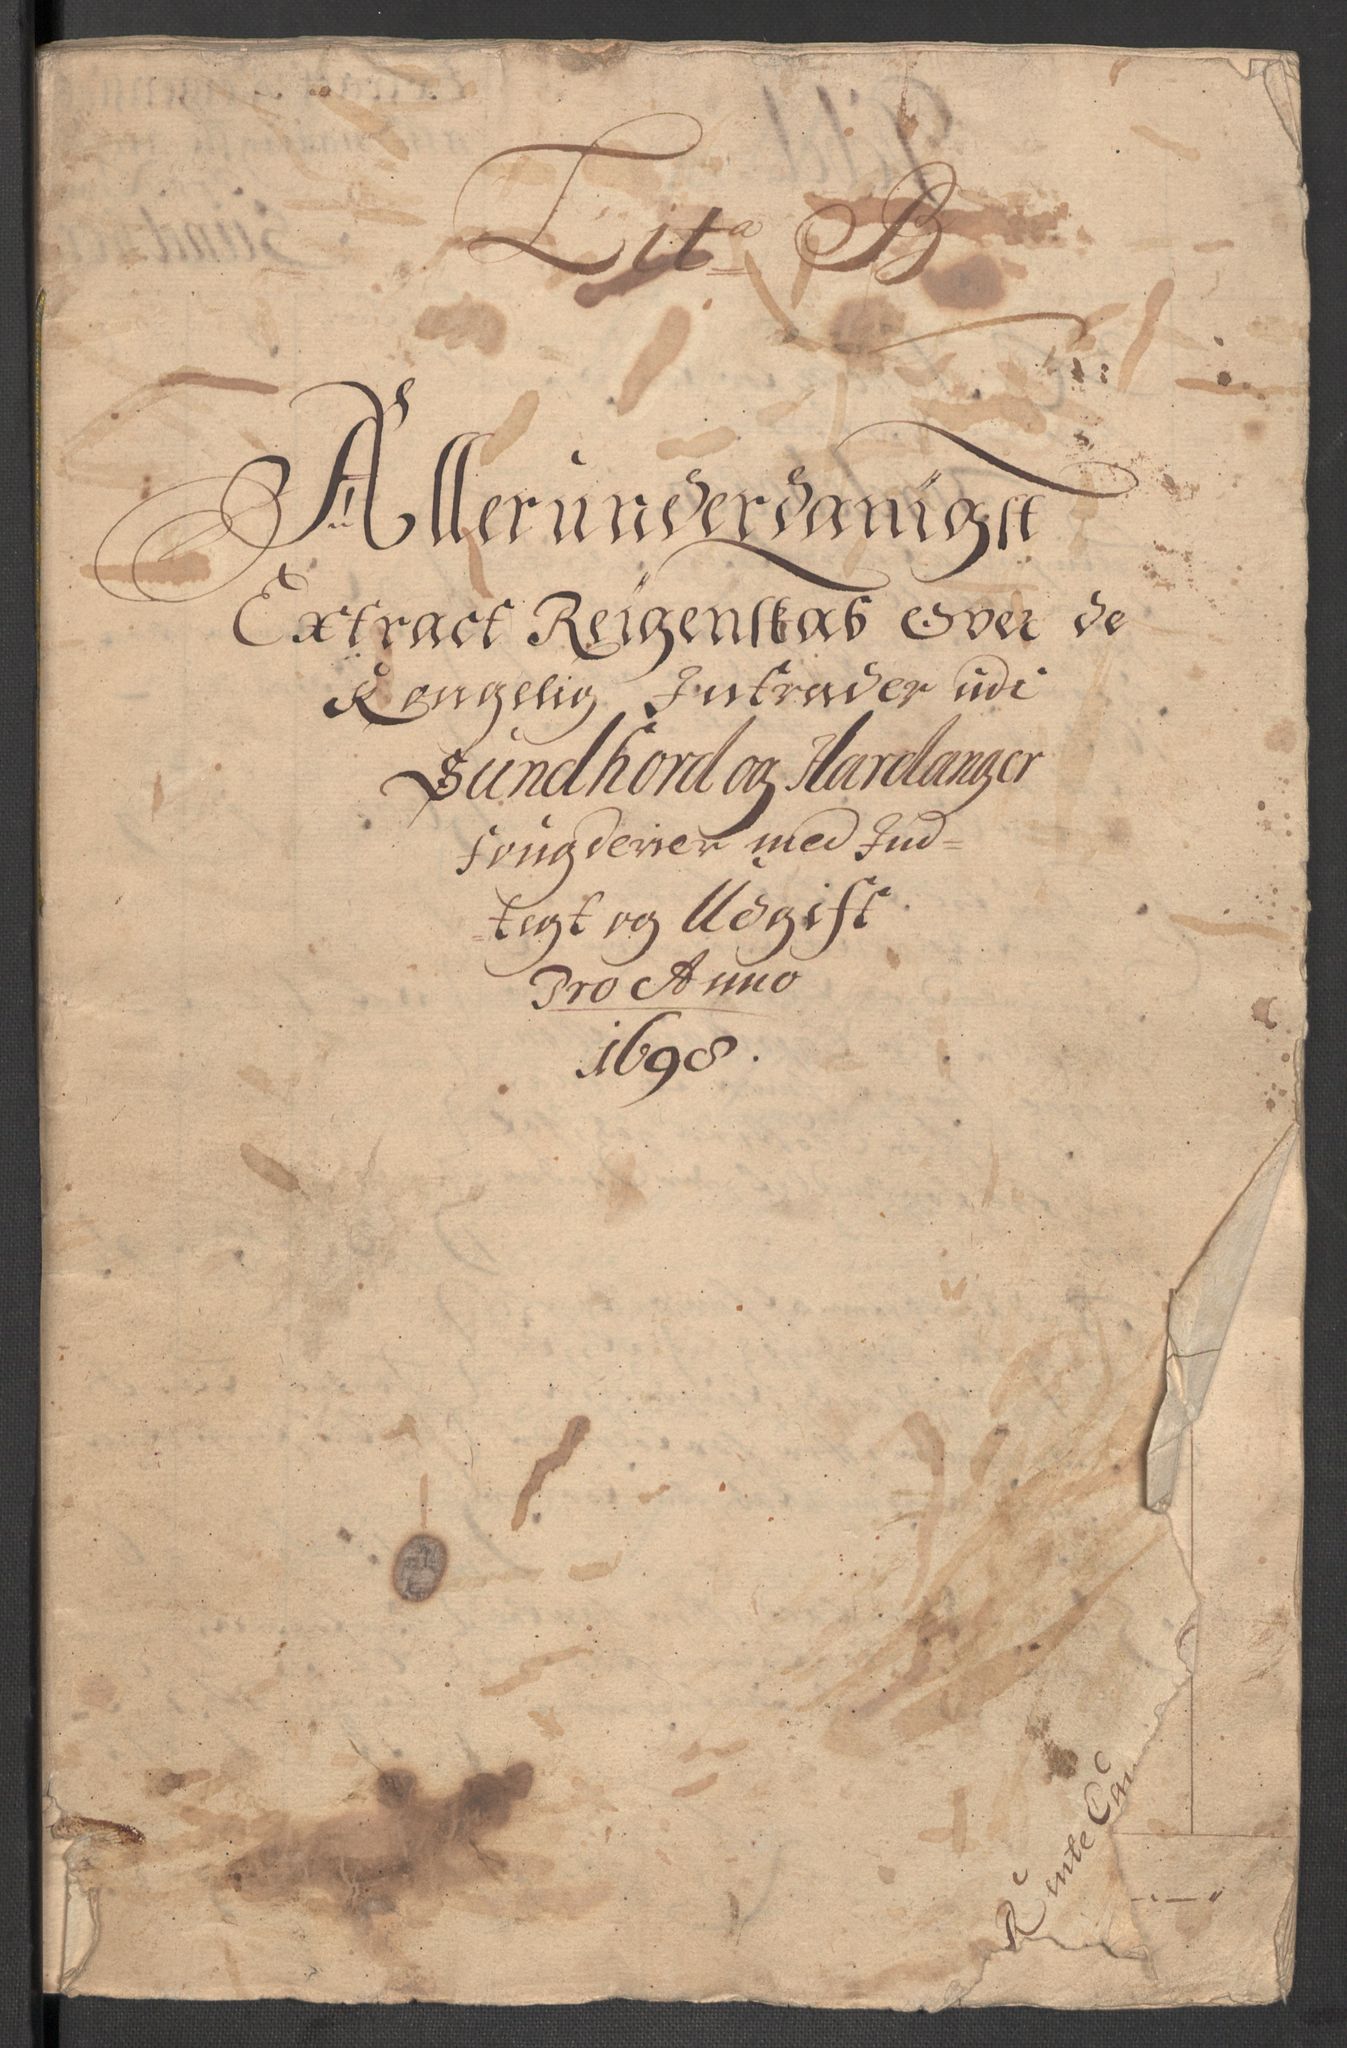 Lit.a B
Allerunderdanigst
Extract Reigenskab Over de
Kongelig Intrader udi
Sundhord og Hardanger
fougderier med Ind=
tegt og Udgift
Pro Anno
1698.
Rente Cam